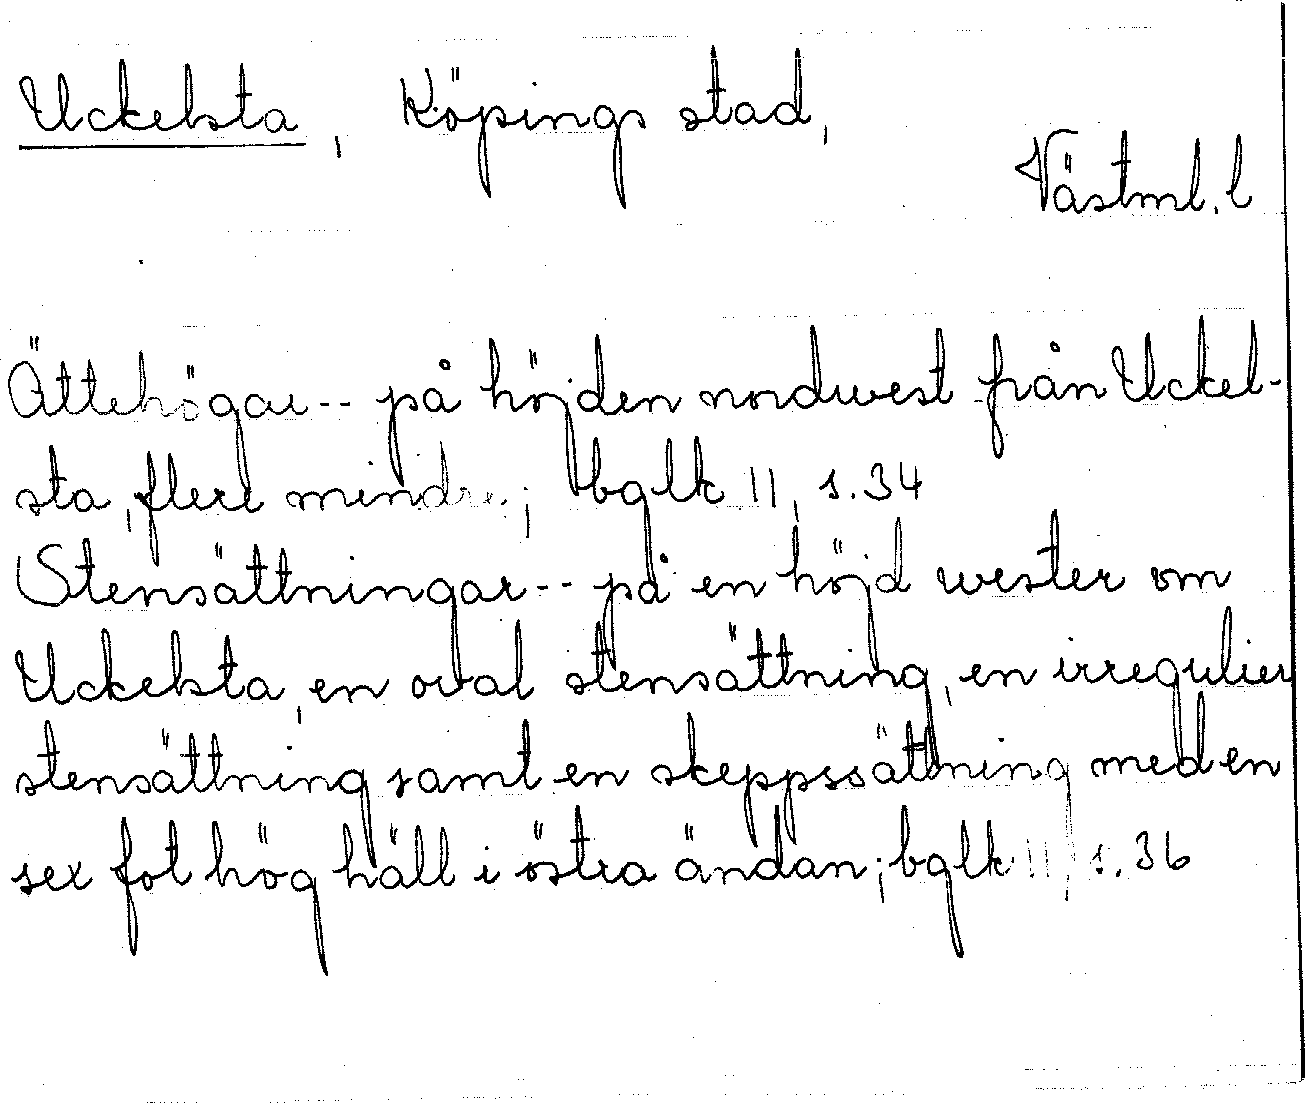 Uckelsta, Köpings stad,
Västml. l
Ättehögar-- på höjden nordwest från Uckel-
sta, flere mindre; bglk II, s. 34
Stensättningar-- på en höjd wester om
Uckelsta, en oval stensättning, en irregulier
stensättning samt en skeppssättning med en
sex fot hög häll i östra ändan; bglk II, s. 36